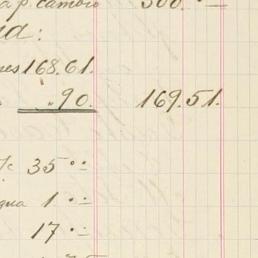 a p. cambio 300.--
nd:
nes 168.61.
. 90. 169.51.
35 --
gua 1 --
17 --